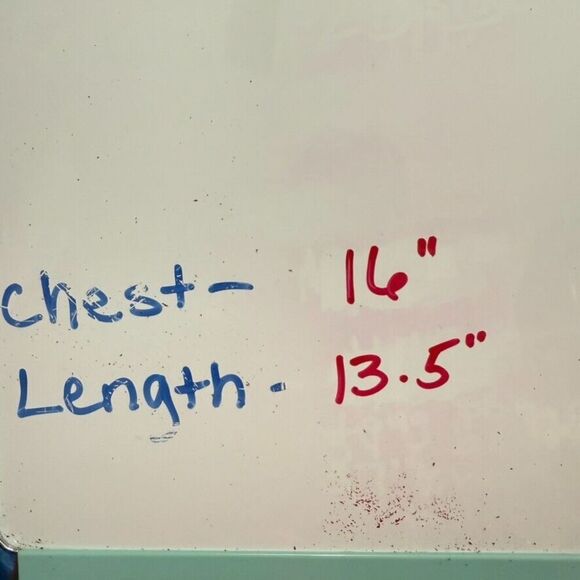 Chest- 16"
Length- 13.5"